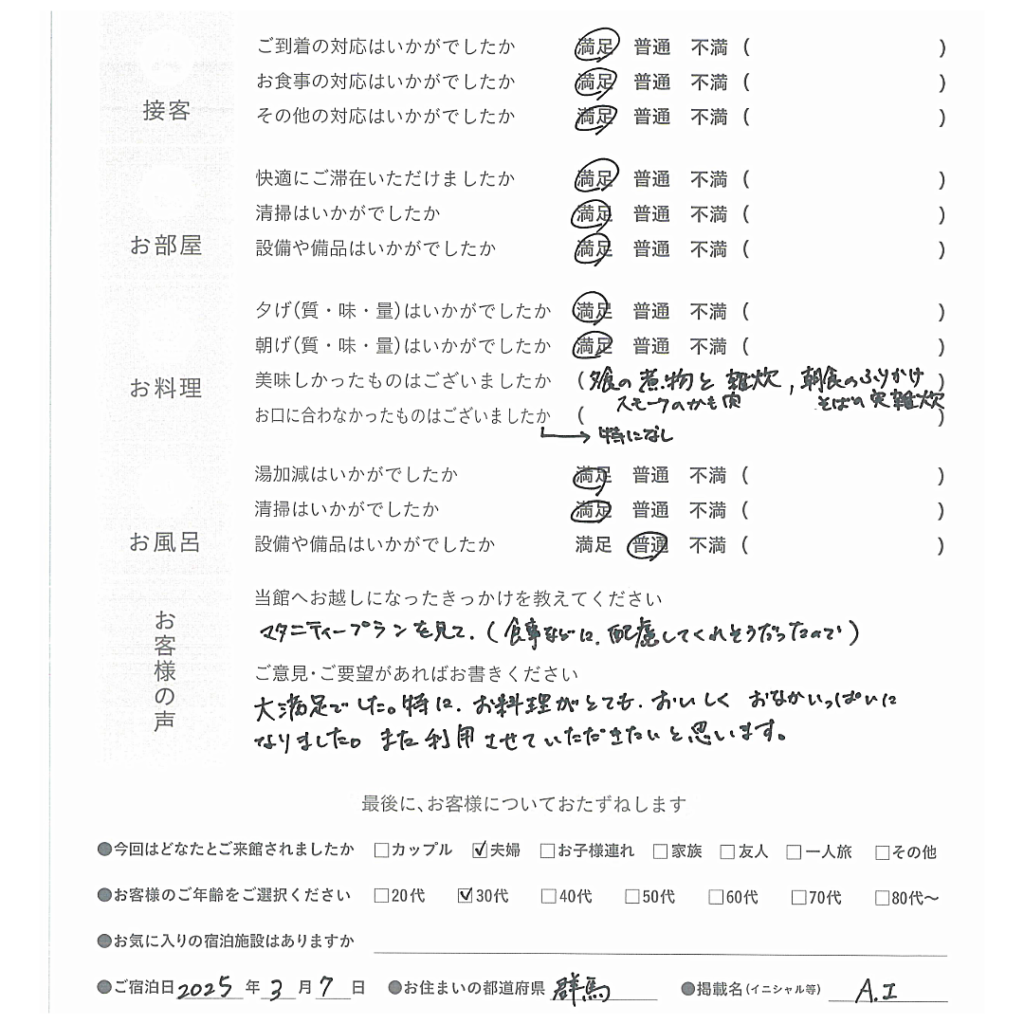 接客
ご到着の対応はいかがでしたか 満足 普通 不満 ( )
お食事の対応はいかがでしたか 満足 普通 不満 ( )
その他の対応はいかがでしたか 満足 普通 不満 ( )
お部屋
快適にご滞在いただけましたか 満足 普通 不満 ( )
清掃はいかがでしたか 満足 普通 不満 ( )
設備や備品はいかがでしたか 満足 普通 不満 ( )
お料理
夕げ(質・味・量)はいかがでしたか 満足 普通 不満 ( )
朝げ(質・味・量)はいかがでしたか 満足 普通 不満 ( )
美味しかったものはございましたか (夕食の煮物と雑炊, 朝食のふりかけ )
スモークのかも肉 そばの実雑炊
お口に合わなかったものはございましたか ( )
→特になし
お風呂
湯加減はいかがでしたか 満足 普通 不満 ( )
清掃はいかがでしたか 満足 普通 不満 ( )
設備や備品はいかがでしたか 満足 普通 不満 ( )
お客様の声
当館へお越しになったきっかけを教えてください
マタニティープランを見て、(食事などに、配慮してくれそうだったので)
ご意見・ご要望があればお書きください
大満足でした。特に、お料理がとても、おいしく おなかいっぱいに
なりました。また利用させていただきたいと思います。
最後に、お客様についておたずねします
●今回はどなたとご来館されましたか □カップル ☑夫婦 □お子様連れ □家族 □友人 □一人旅 □その他
●お客様のご年齢をご選択ください □20代 ☑30代 □40代 □50代 □60代 □70代 □80代〜
●お気に入りの宿泊施設はありますか
●ご宿泊日 2025 年 3 月 7 日 ●お住まいの都道府県 群馬 ●掲載名(イニシャル等) A.I